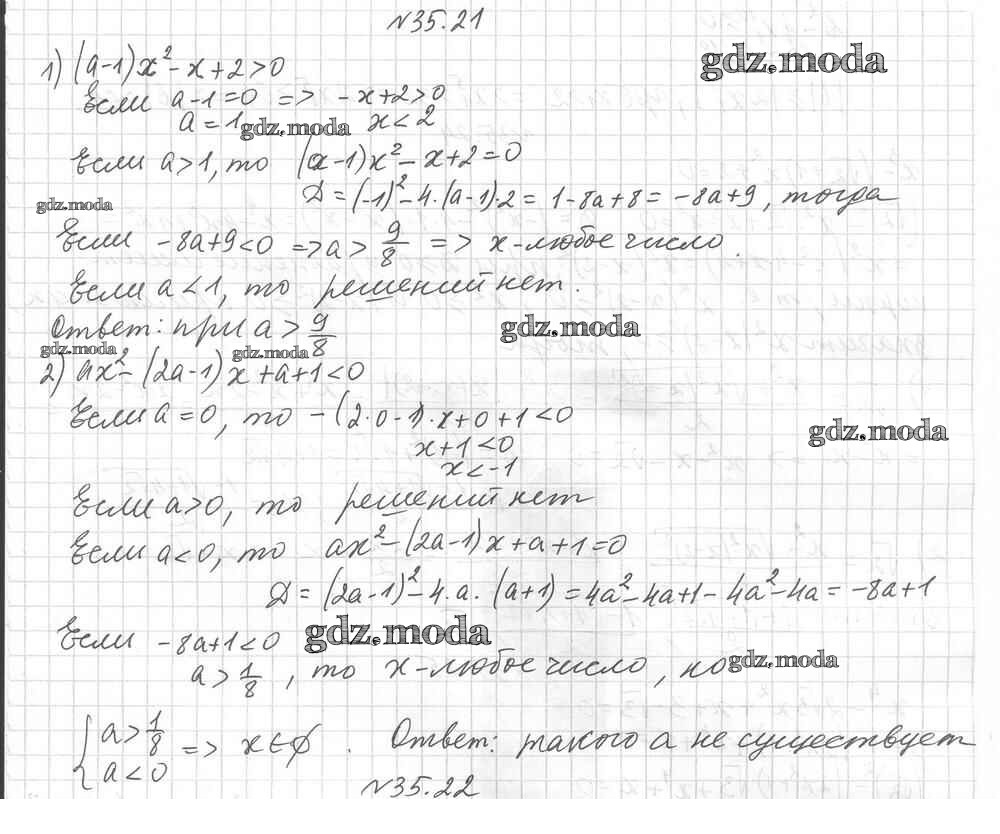 №35.21
gdz.moda
1) (a-1)x²-x+2>0
Если a-1=0 => -x+2>0
a=1 gdz.moda x<2
Если a>1, то (a-1)x²-x+2=0
Д=(-1)²-4·(a-1)·2=1-8a+8=-8a+9, тогда
gdz.moda
Если -8a+9<0 => a>9/8 => x-любое число
Если a<1, то решений нет.
Ответ: при a>9/8
gdz.moda
gdz.moda gdz.moda
2) ax²-(2a-1)x+a+1<0
Если a=0, то -(2·0-1)·x+0+1<0
gdz.moda
x+1<0
x<-1
Если a>0, то решений нет
Если a<0, то ax²-(2a-1)x+a+1=0
Д=(2a-1)²-4·a·(a+1)=4a²-4a+1-4a²-4a=-8a+1
Если -8a+1<0 gdz.moda
a>1/8, то x-любое число, но gdz.moda
{a>1/8
a<0 => x∈∅. Ответ: такого a не существует
№35.22